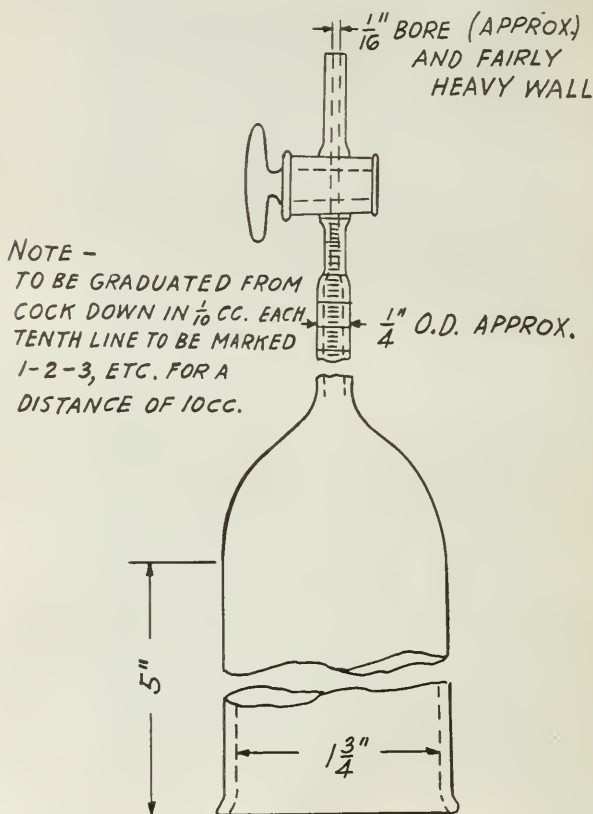 1/16" BORE (APPROX.)
AND FAIRLY
HEAVY WALL
NOTE -
TO BE GRADUATED FROM
COCK DOWN IN 1/10 CC. EACH
TENTH LINE TO BE MARKED
1-2-3, ETC. FOR A
DISTANCE OF 10CC.
1/4" O.D. APPROX.
5"
1 3/4"